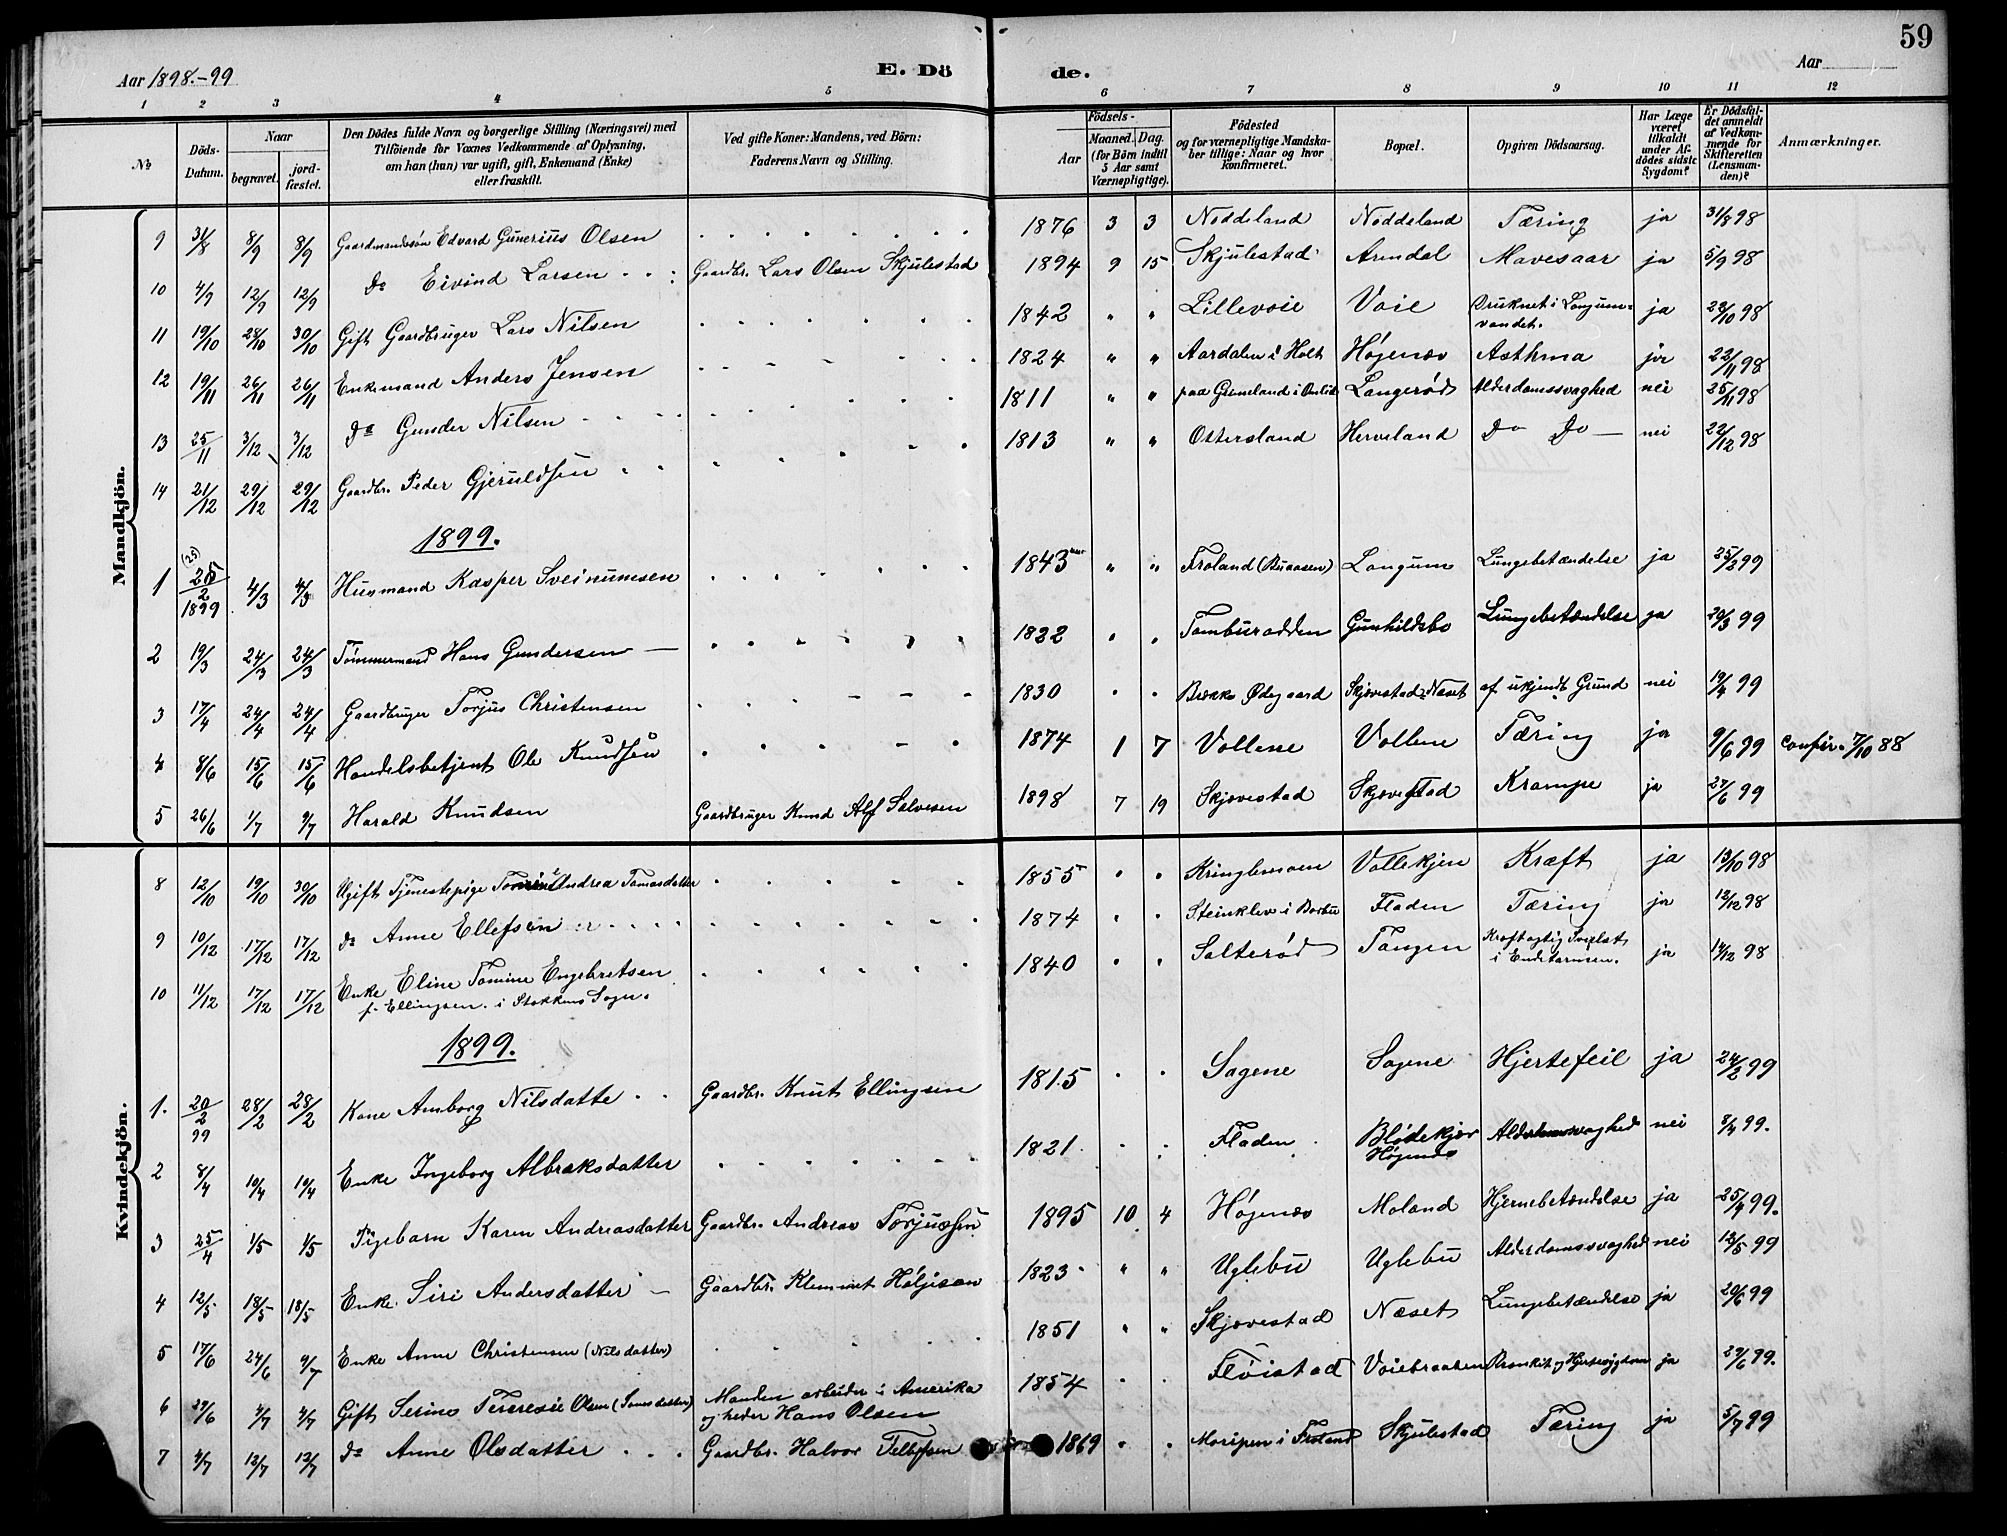 59
Aar 1898.-99
E. Dö
de.
Aar
1 2 3 4 5 6 7 8 9 10 11 12
No
Döds-Datum.
Naar
begravet.
jord-fæstet.
Den Dödes fulde Navn og borgerlige Stilling (Næringsvei) med Tilföiende for Voxnes Vedkommende af Oplysning, om han (hun) var ugift, gift, Enkemand (Enke) eller fraskilt.
Ved gifte Koner: Mandens, ved Börn: Faderens Navn og Stilling.
Födsels-
Aar
Maaned. Dag.
(for Börn indtil 5 Aar samt Værnepligtige).
Födested og for værnepligtige Mandskaber tillige: Naar og hvor konfirmeret.
Bopæl.
Opgiven Dödsaarsag.
Har Læge været tilkaldt under Afdödes sidste Sygdom?
Er Dödsfaldet anmeldt af Vedkommende for Skifteretten (Lensmanden)?
Anmærkninger.
Mandkjön.
9 31/8 8/9 8/9 Gaardmandssøn Edvard Gunerius Olsen 1876 3 3 Nøddeland Nøddeland Tæring ja 31/8 98
10 4/9 12/9 12/9 Do Eivind Larsen Gaardbr. Lars Olsen Skjulestad 1894 9 15 Skjulestad Arendal Mavesaar ja 5/9 98
11 19/10 28/10 30/10 Gift Gaardbruger Lars Nilsen 1842 " " Lillevoie Voie Druknet i Longum-vandet. ja 22/10 98
12 19/11 26/11 26/11 Enkemand Anders Jensen 1824 " " Aardalen i Holt Høgenæs Asthma ja 22/11 98
13 25/11 3/12 3/12 Do Gunder Nilsen 1811 " " paa Grimeland i Omlid Langerød Alderdomssvaghed nei 25/11 98
14 21/12 29/12 29/12 Gaardbr. Peder Gjeruldsen 1813 " " Ottersland Herveland Do Do nei 22/12 98
1899.
1 (25) 25/2 1899 4/3 4/3 Husmand Kasper Sveinumsen 1843 " " Froland (Buaasen) Longum Lungebetændelse ja 25/2 99
2 19/3 24/3 24/3 Tømmermand Hans Gundersen 1822 " " Tomburodden Gunhildsbo Lungebetændelse ja 20/3 99
3 17/4 24/4 24/4 Gaardbruger Torjus Christensen 1830 " " Brekke Ødegaard Skjævestad Næset af ukjendt Grund nei 19/4 99
4 8/6 15/6 15/6 Handelsbetjent Ole Knudsen 1874 1 7 Vollene Vollene Tæring ja 9/6 99 Confir. 7/10 88
5 26/6 1/7 9/7 Harald Knudsen Gaardbruger Knud Alf Salvesen 1898 7 19 Skjævestad Skjævestad Krampe ja 27/6 99
Kvindekjön.
8 12/10 19/10 30/10 Ugift Tjenestepige Tomine Andrea Tomasdatter 1855 " " Kringlemoen Vollekjen Kræft ja 13/10 98
9 10/12 17/12 17/12 Do Anne Ellefsen 1874 " " Steinklev i Barbu Fladen Tæring ja 12/12 98
10 11/12 17/12 17/12 Enke Eline Tomine Engebretsen
f. Ellingsen. i Stokkens Sogn. 1840 " " Salterød Tangen Kræftagtig Svulst i Endetarmen. ja 14/12 98
1899.
1. 20/2 99 28/2 28/2 Kone Amborg Nilsdatte Gaardbr. Knut Ellingsen 1815 " " Sagene Sagene Hjertefeil ja 24/2 99
2 8/4 10/4 10/4 Enke Ingeborg Albraksdatter 1821 " " Fladen Blødekjær Høgenæs Alderdomssvaghed nei 8/4 99.
3 25/4 1/5 1/5 Pigebarn Karen Andreasdatter Gaardbr. Andreas Torjussen 1895 10 4 Høgenæs Moland Hjernebetændelse ja 25/4 99.
4 12/5 18/5 18/5 Enke Siri Andersdatter Gaardbr. Klemmet Høljeson 1823 " " Uglebu Uglebu Alderdomssvaghed nei 13/5 99
5 17/6 24/6 9/7 Enke Anne Christensen (Nilsdatter) 1851 " " Skjævestad Næset Lungebetændelse ja 20/6 99
6 27/6 4/7 4/7 Gift Serine Teresie Olsen (Jonsdatter) Manden arbeider i Amerika og heder Hans Olsen 1854 " " Fløistad Voiebraaten Bronkit og Hjertesygdom ja 29/6 99.
7 4/7 12/7 12/7 Do Anne Olsdatter Gaardbr. Halvor Tellefsen 1869 " " Moripen i Froland Skjulestad Tæring ja 5/7 99